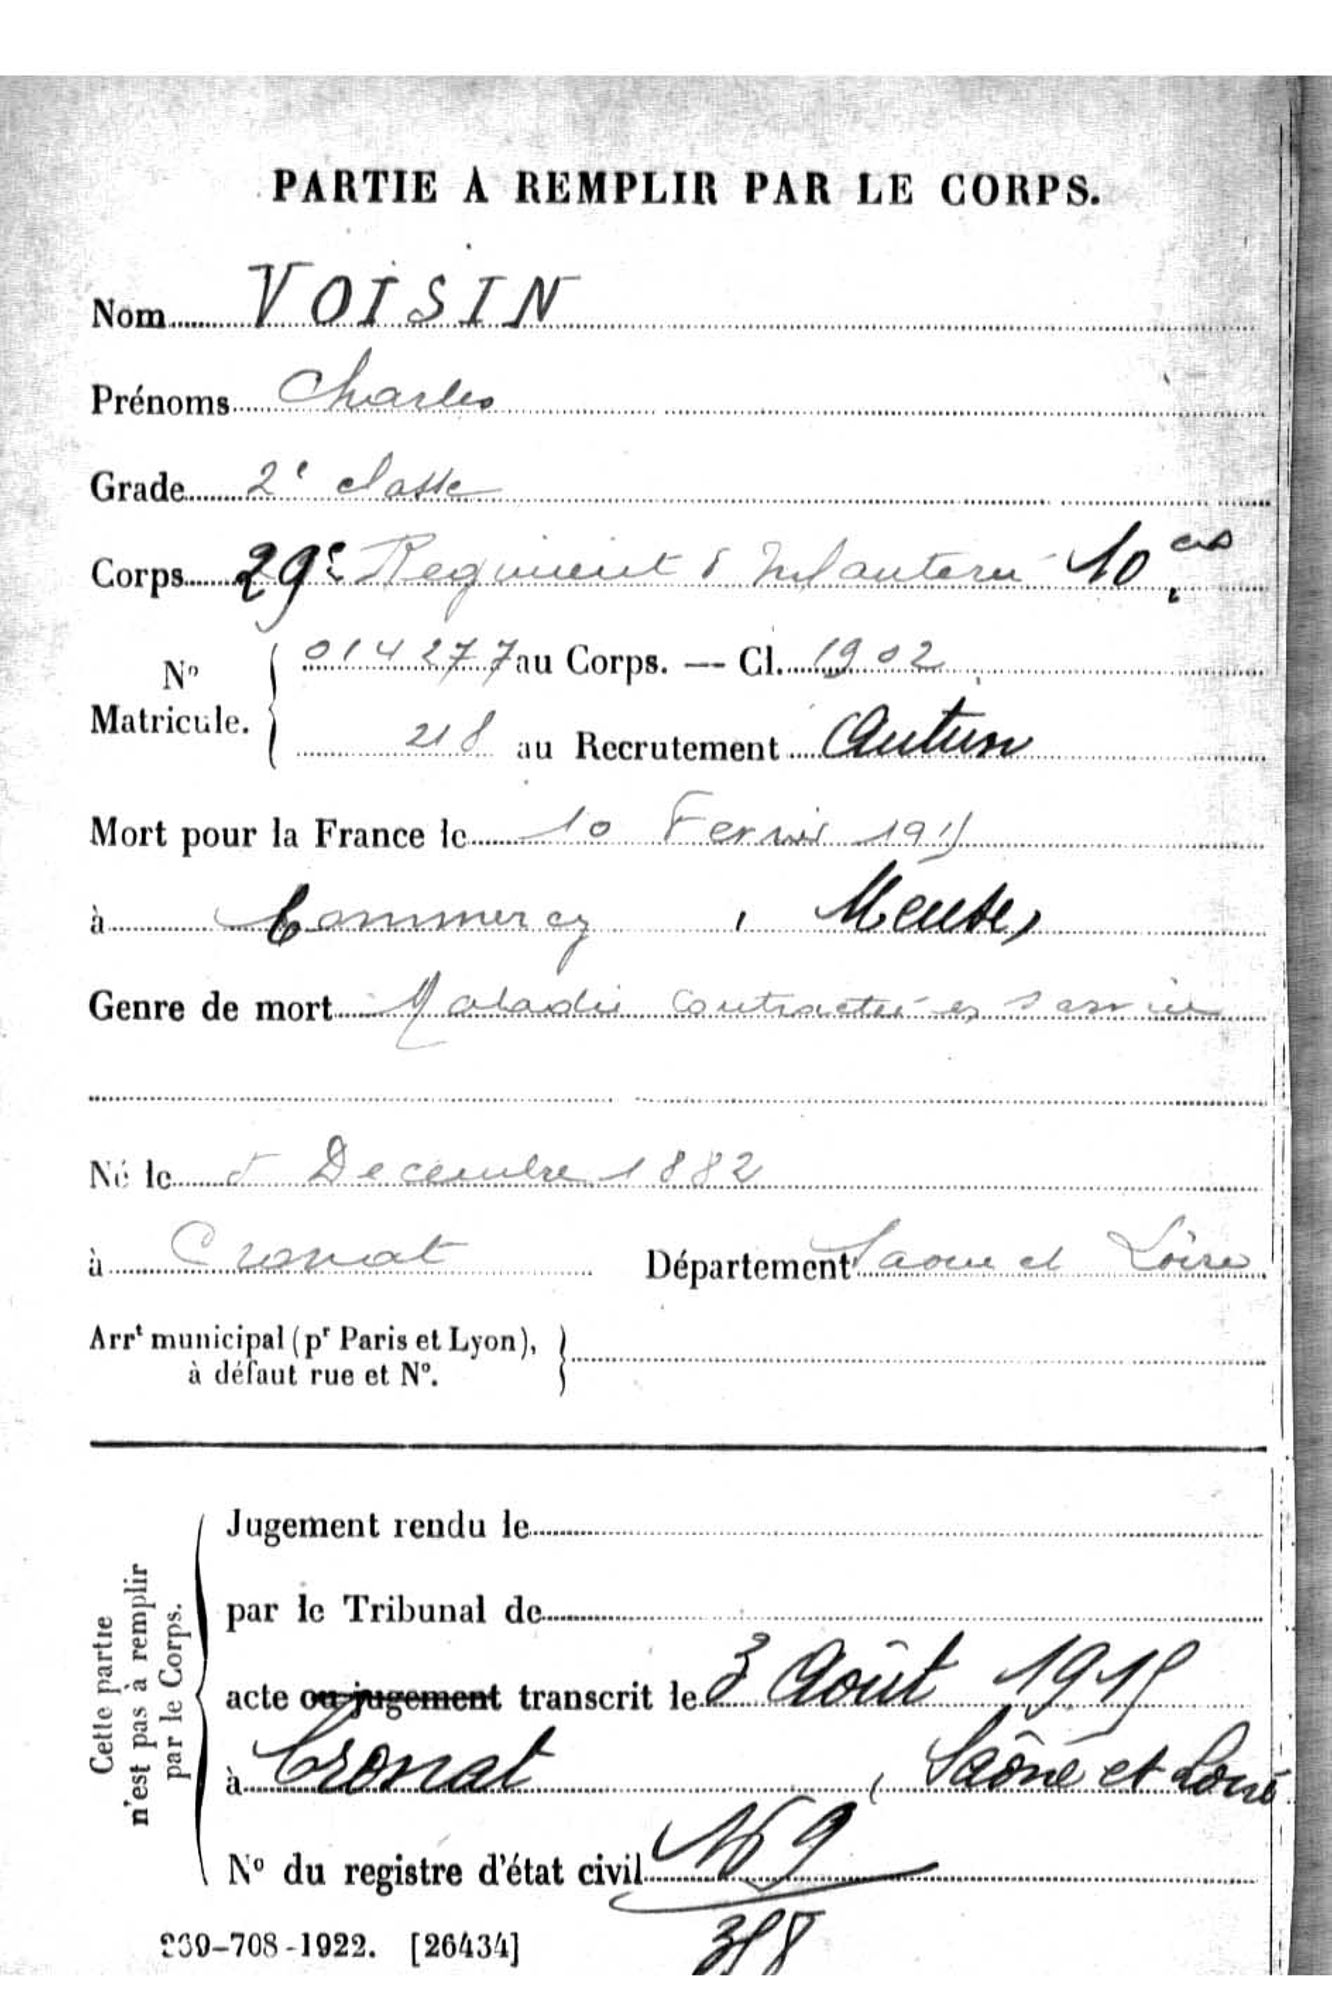 PARTIE A REMPLIR PAR LE CORPS.
Nom VOISIN
Prénoms Charles
Grade 2e classe
Corps 29e Regiment d'Infanterie 10 cie
No Matricule. 014277 au Corps. — Cl. 1902
218 au Recrutement Autun
Mort pour la France le 10 Fevrier 1915
à Commercy, Meuse,
Genre de mort Maladie contractée en service
Né le 5 Decembre 1882
à Cronat Département Saone et Loire
Arrt municipal (pr Paris et Lyon),
à défaut rue et No.
Cette partie
n'est pas à remplir
par le Corps.
Jugement rendu le
par le Tribunal de
acte ou jugement transcrit le 3 Août 1915
à Cronat, Saône et Loire
No du registre d'état civil No 9
-708-1922. [26434]